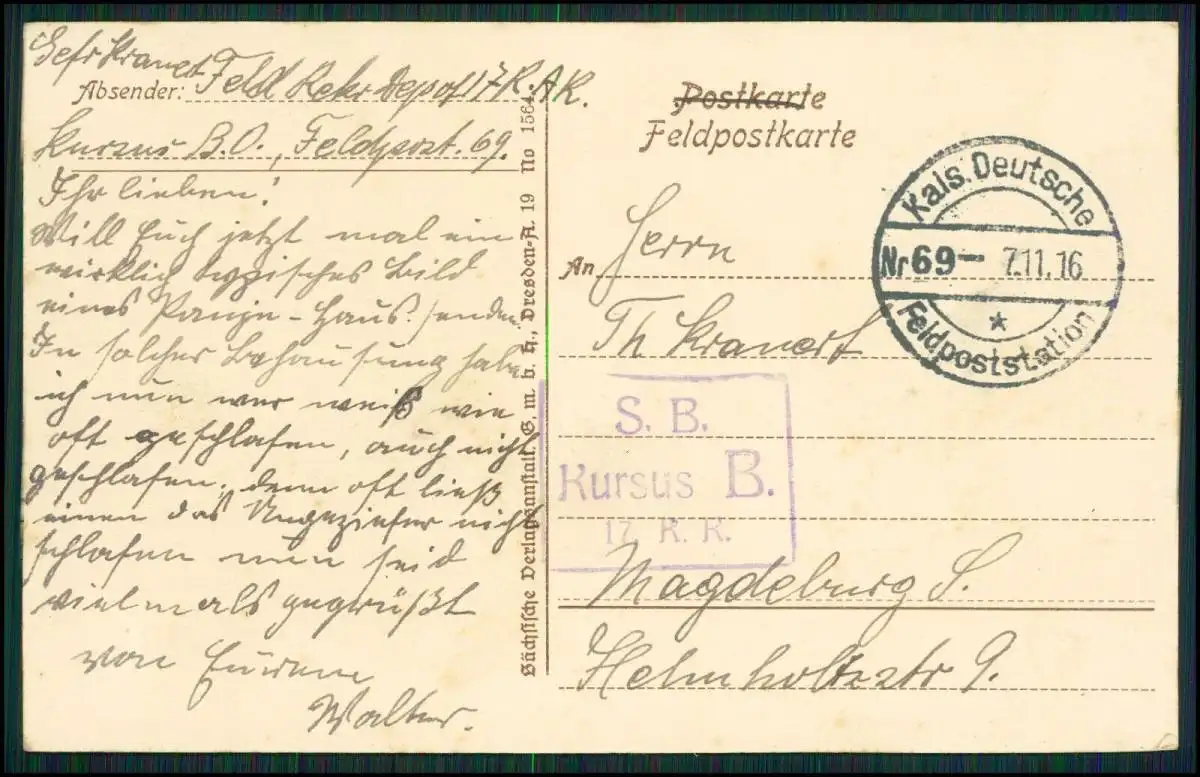 Gefr Kranert
Absender: Feld Rekr Depot 17 R. A K.
Kursus B.O., Feldpost. 69.
Ihr lieben!
Will Euch jetzt mal ein
wirklich typisches Bild
eines Panje-Haus. senden
In solcher Behausung habe
ich nun wer weiß wie
oft geschlafen, auch nicht
geschlafen, denn oft ließ
einen das Ungeziefer nicht
schlafen nun seid
vielmals gegrüßt
von Eurem
Walter.
Sächsische Verlagsanstalt, G. m. b. H., Dresden-A. 19 No 1564.
Postkarte
Feldpostkarte
Kais. Deutsche
Nr 69 - 7.11.16
Feldpoststation
An Herrn
Th Kranert
S. B.
Kursus B.
17. R. R.
Magdeburg S.
Helmholtzstr 9.